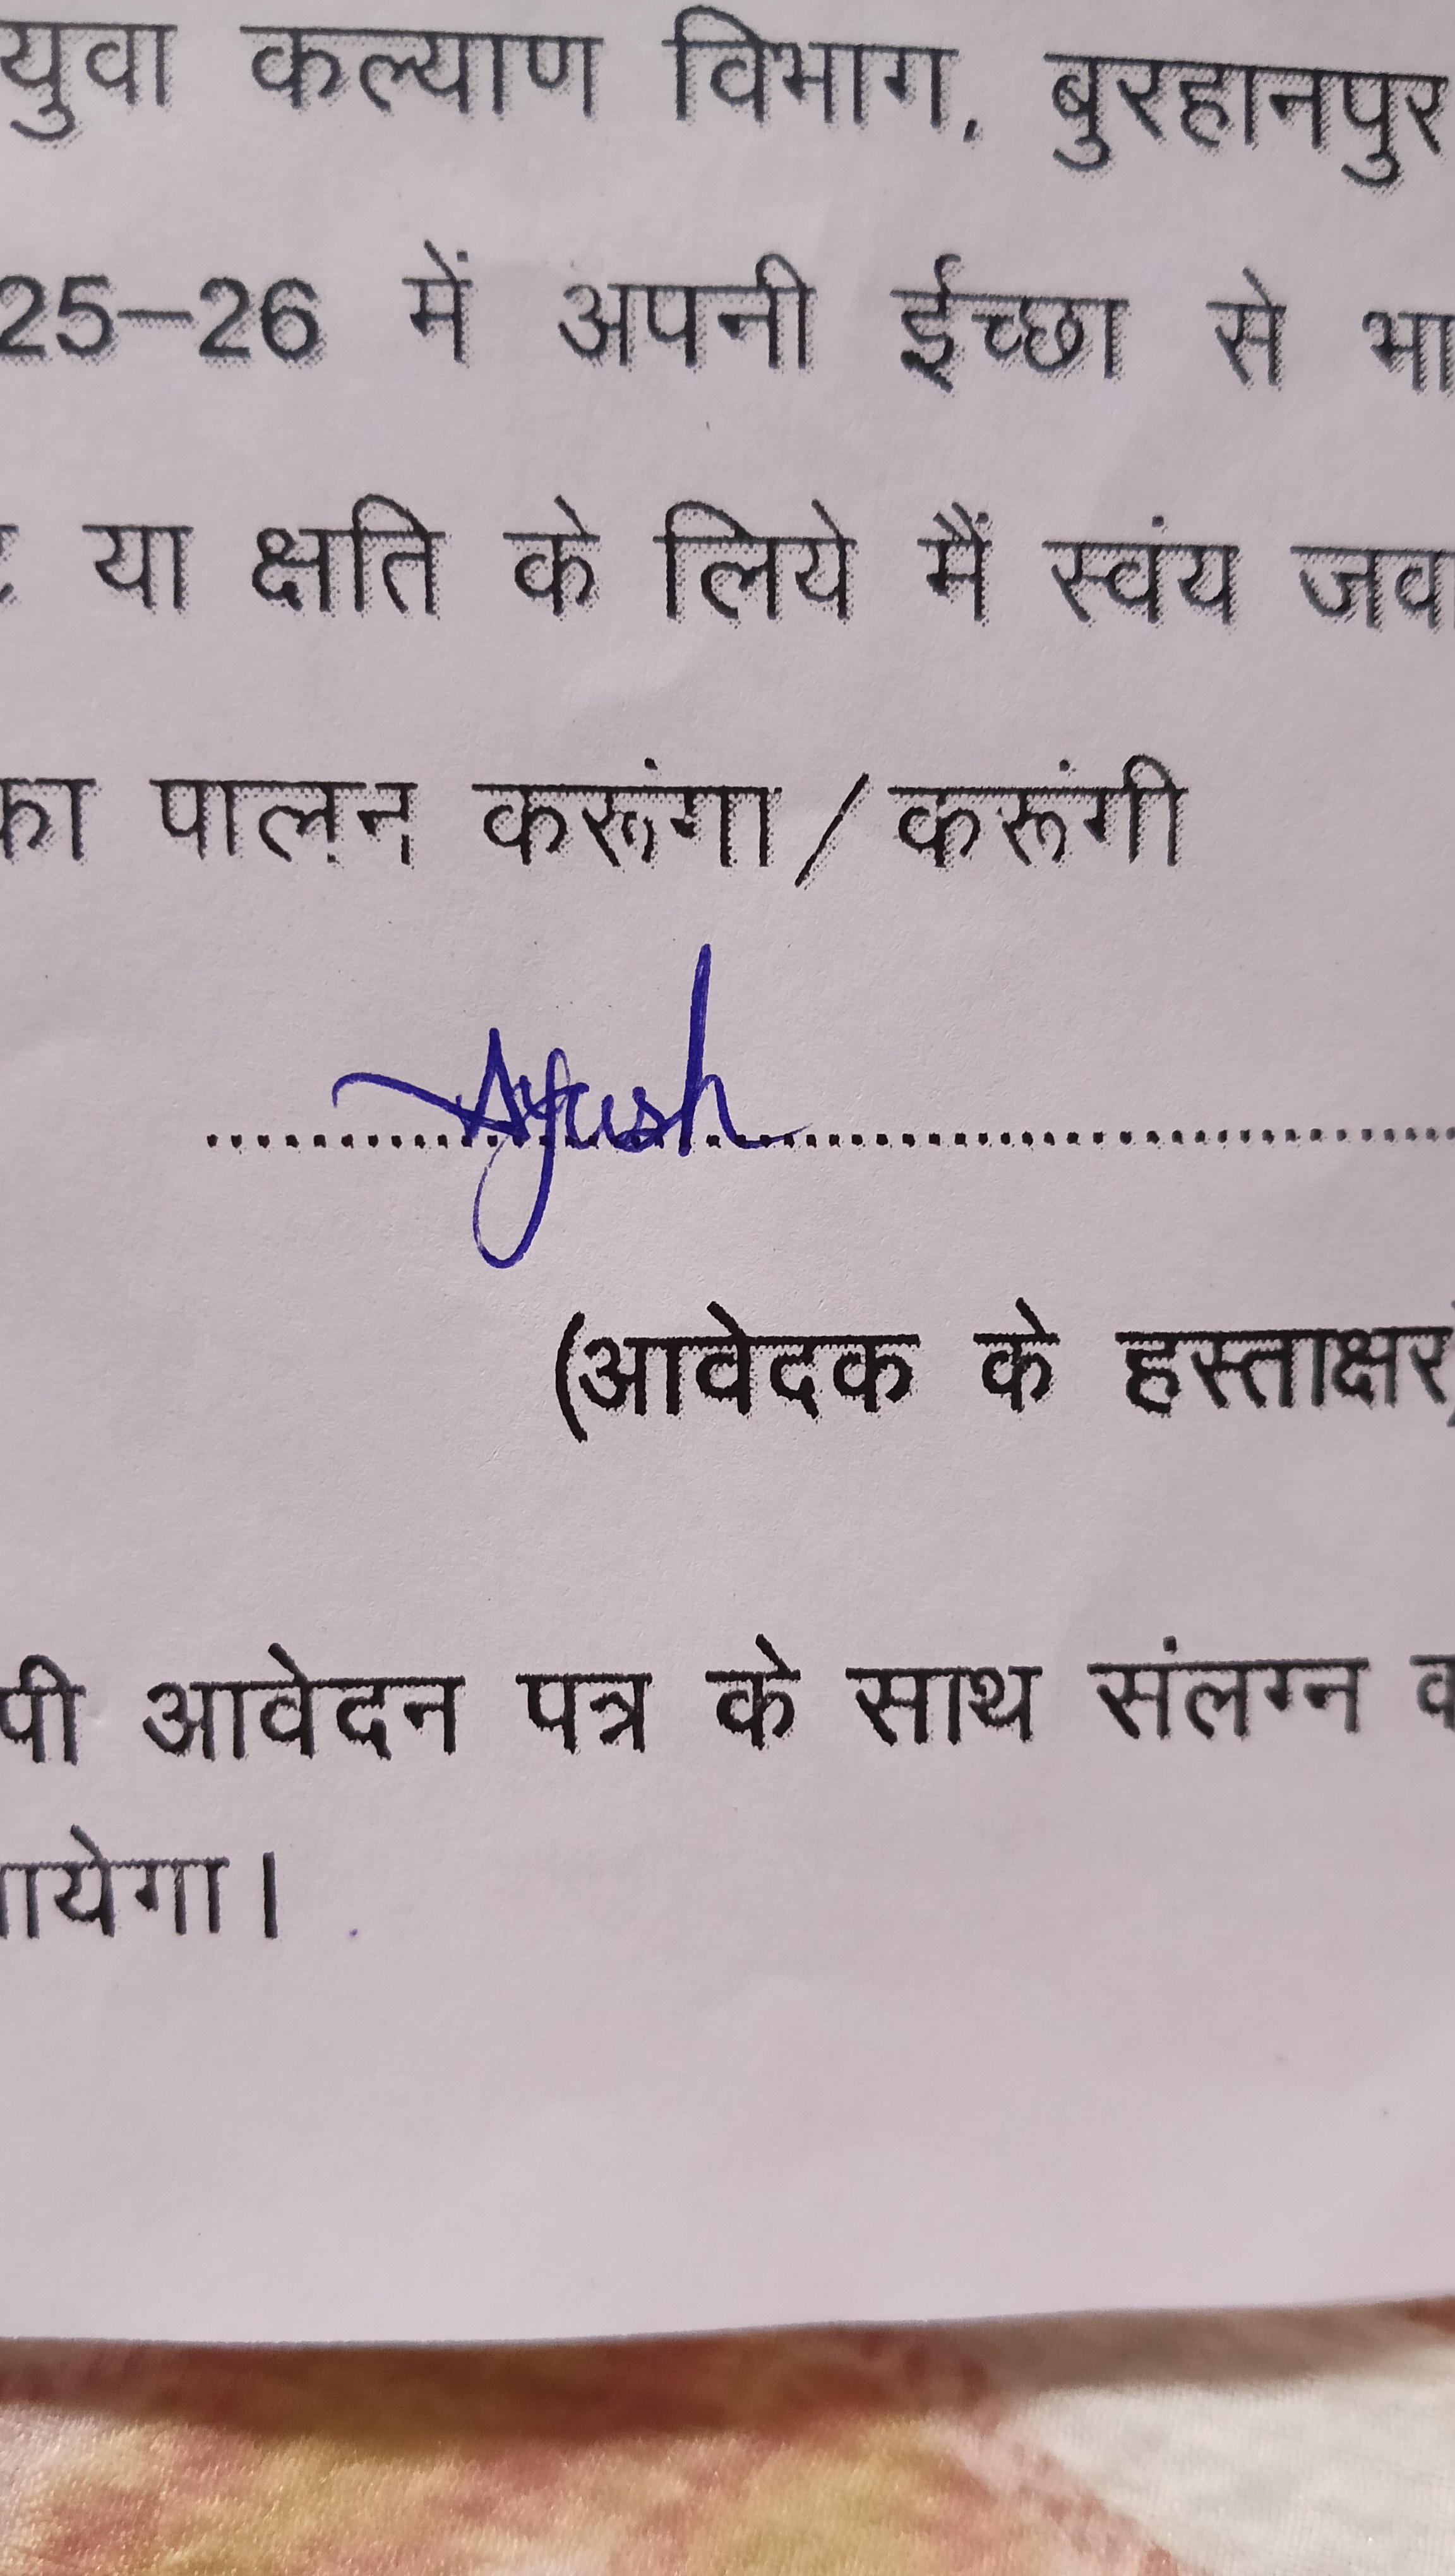 युवा कल्याण विभाग, बुरहानपुर
25–26 में अपनी ईच्छा से
या क्षति के लिये मैं स्वंय
का पालन करूंगा/करूंगी
Ayush
(आवेदक के हस्ताक्षर)
आवेदन पत्र के साथ संलग्न